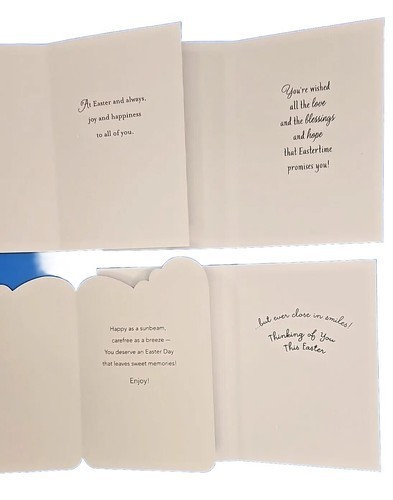 At Easter and always,
joy and happiness
to all of you.
You're wished
all the love
and the blessings
and hope
that Eastertime
promises you!
Happy as a sunbeam,
carefree as a breeze —
You deserve an Easter Day
that leaves sweet memories!
Enjoy!
...but ever close in smiles!
Thinking of You
This Easter